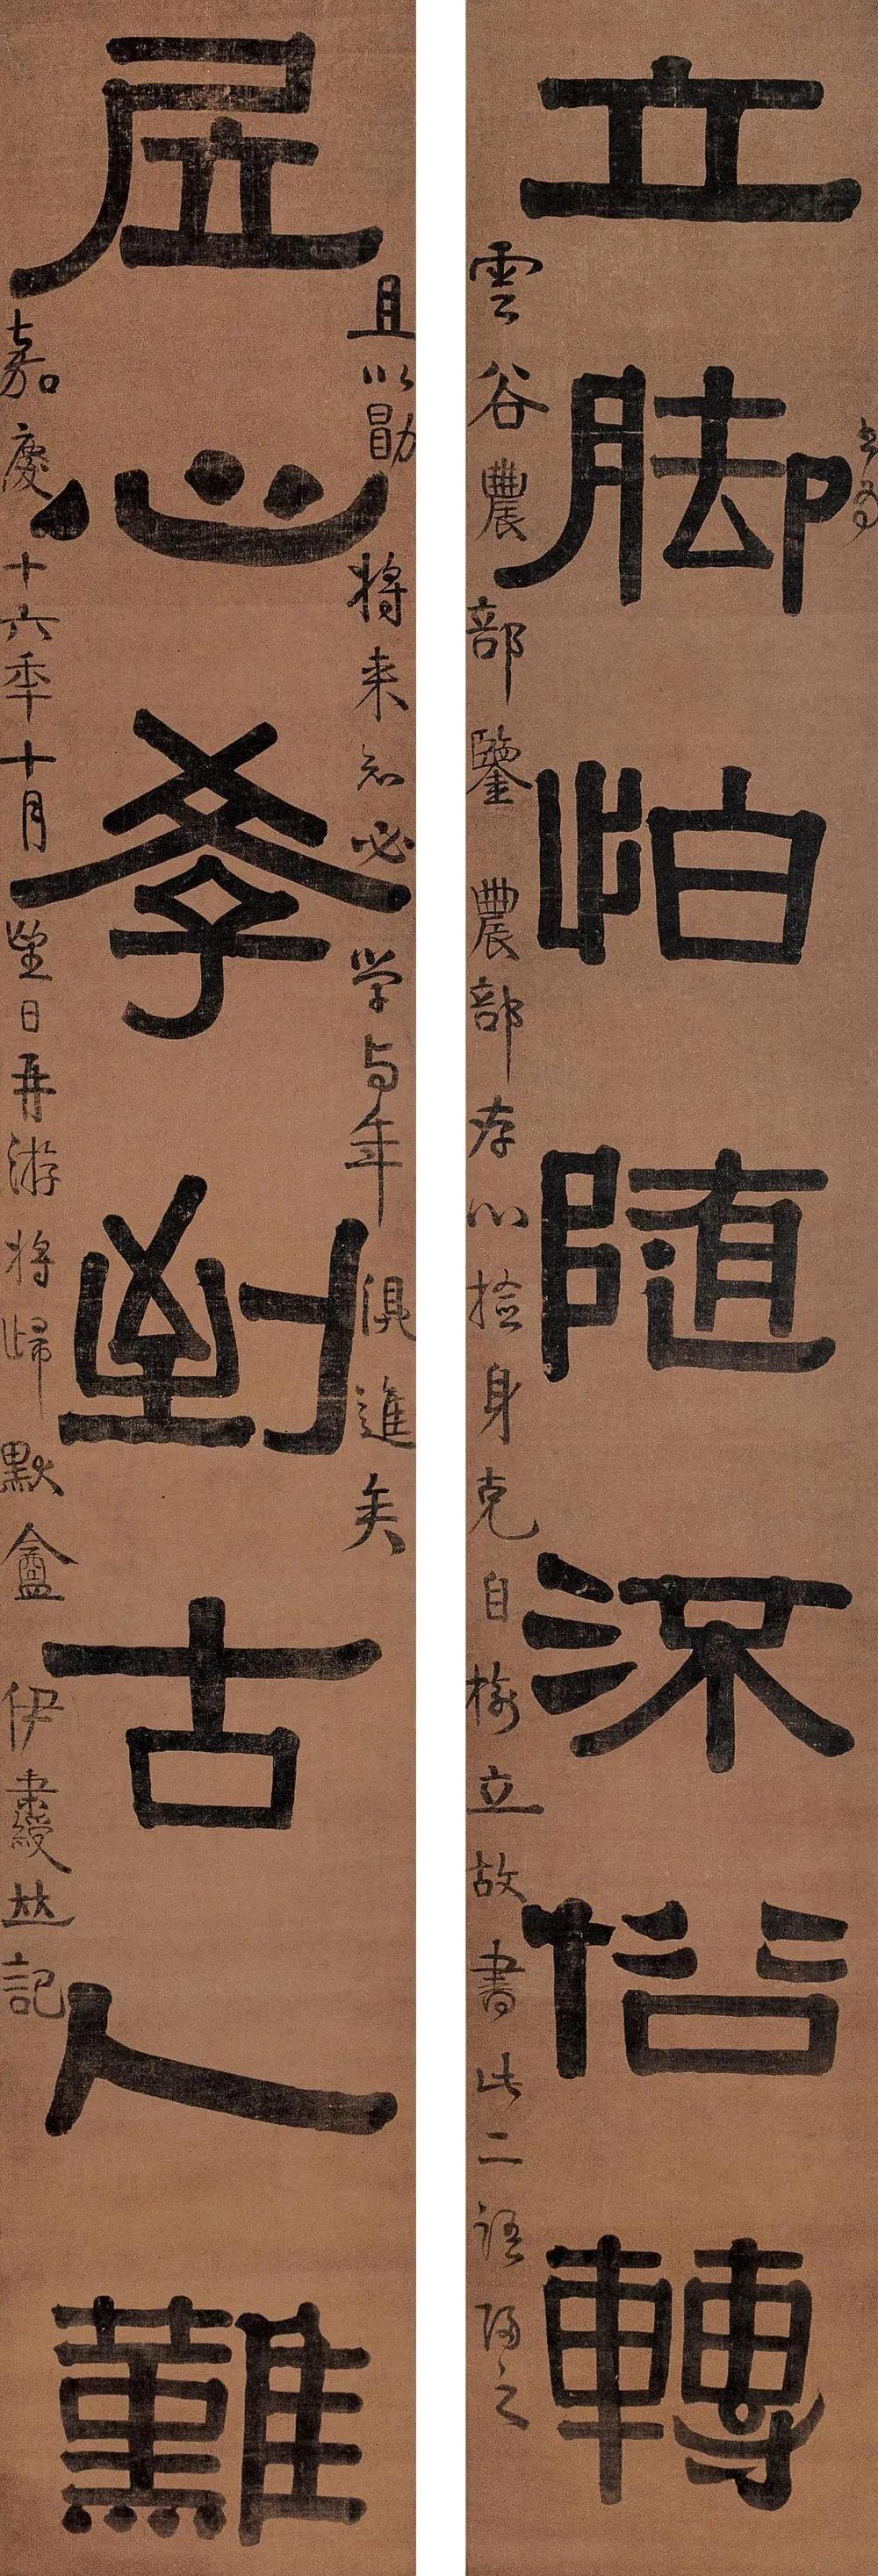 立脚怕随流俗轉
雲谷農部鑒 農部存心撿身克自樹立故書此二語歸之
居心學到古人難
且以勖將来知必学与年俱進矣
嘉慶十六年十月望日再游將歸默盦伊秉綬並記